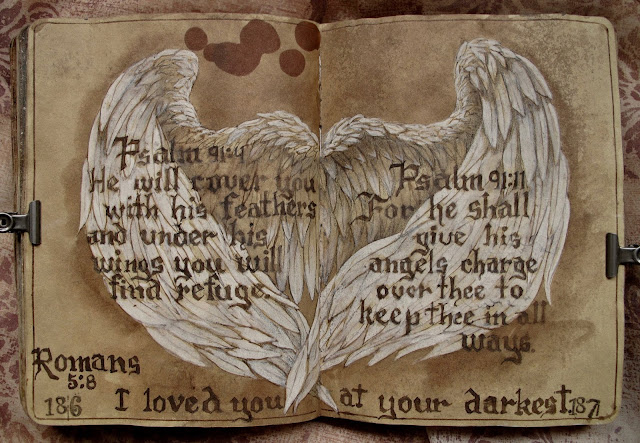 Psalm 91:4
He will cover you
with his feathers
and under his
wings you will
find refuge.
Psalm 91:11
For he shall
give his
angels charge
over thee to
keep thee in all
ways.
Romans
5:8
I loved you at your darkest.
186
187